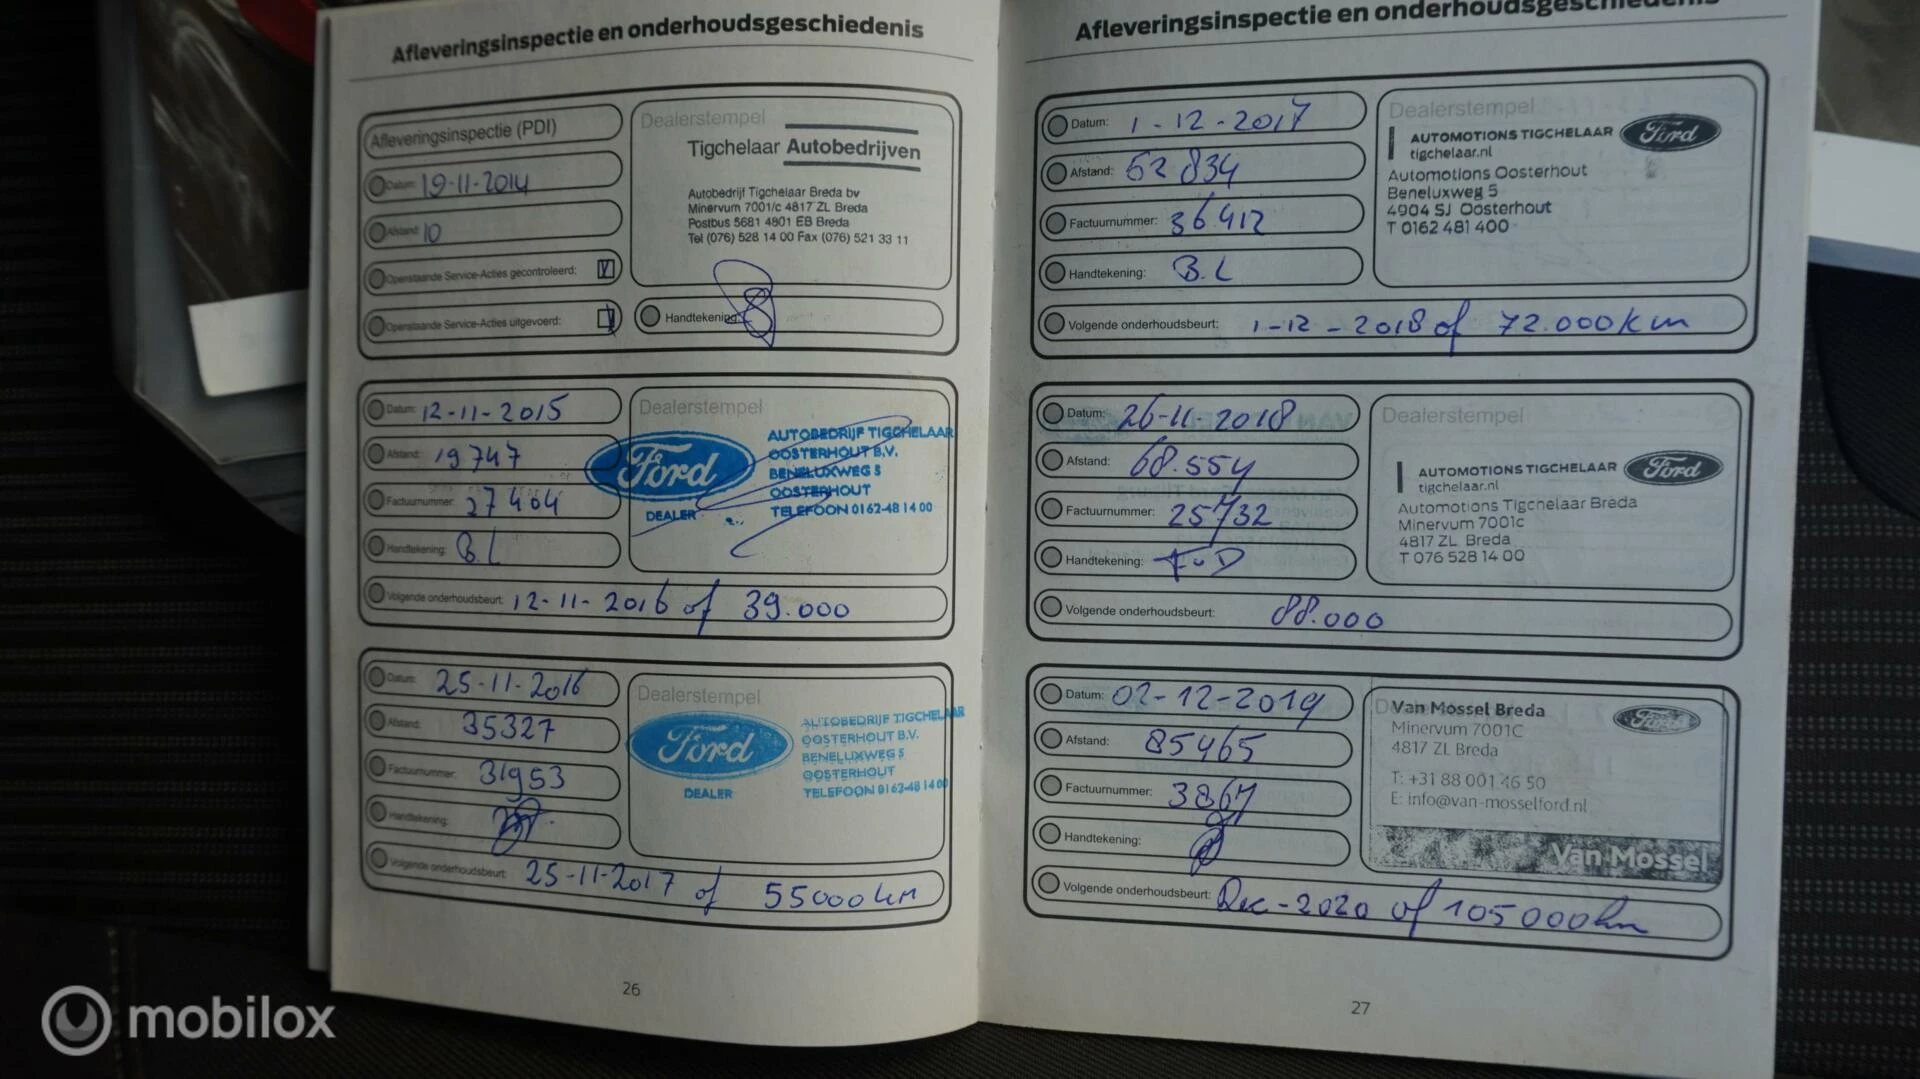 Afleveringsinspectie en onderhoudsgeschiedenis
Afleveringsinspectie (PDI)
Datum: 19-11-2014
Afstand: 10
Openstaande Service-Acties gecontroleerd:
Openstaande Service-Acties uitgevoerd:
Dealerstempel
Tigchelaar Autobedrijven
Autobedrijf Tigchelaar Breda bv
Minervum 7001/c 4817 ZL Breda
Postbus 5681 4801 EB Breda
Tel (076) 528 14 00 Fax (076) 521 33 11
Handtekening:
Datum: 12-11-2015
Afstand: 19747
Factuurnummer: 27464
Handtekening: B.L
Dealerstempel
Ford
DEALER
AUTOBEDRIJF TIGCHELAAR
OOSTERHOUT B.V.
BENELUXWEG 5
OOSTERHOUT
TELEFOON 0162-48 14 00
Volgende onderhoudsbeurt: 12-11-2016 of 39.000
Datum: 25-11-2016
Afstand: 35327
Factuurnummer: 31953
Handtekening:
Dealerstempel
Ford
DEALER
AUTOBEDRIJF TIGCHELAAR
OOSTERHOUT B.V.
BENELUXWEG 5
OOSTERHOUT
TELEFOON 0162-48 14 00
Volgende onderhoudsbeurt: 25-11-2017 of 55000km
26
Afleveringsinspectie en onderhoudsgeschiedenis
Datum: 1-12-2017
Afstand: 52834
Factuurnummer: 36412
Handtekening: B.L
Dealerstempel
AUTOMOTIONS TIGCHELAAR
tigchelaar.nl
Ford
Automotions Oosterhout
Beneluxweg 5
4904 SJ Oosterhout
T 0162 481 400
Volgende onderhoudsbeurt: 1-12-2018 of 72.000km
Datum: 26-11-2018
Afstand: 68.554
Factuurnummer: 25732
Handtekening: FvD
Dealerstempel
AUTOMOTIONS TIGCHELAAR
tigchelaar.nl
Ford
Automotions Tigchelaar Breda
Minervum 7001c
4817 ZL Breda
T 076 528 14 00
Volgende onderhoudsbeurt: 88.000
Datum: 02-12-2019
Afstand: 85465
Factuurnummer: 3867
Handtekening:
Van Mossel Breda
Minervum 7001C
4817 ZL Breda
T: +31 88 001 46 50
E: info@van-mosselford.nl
Ford
Van Mossel
Volgende onderhoudsbeurt: Dec-2020 of 105000km
27
mobilox